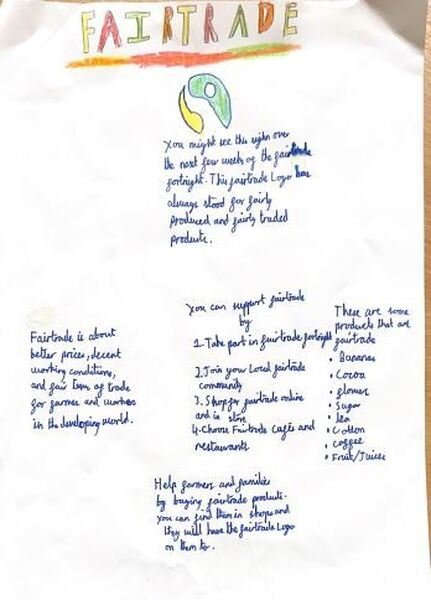 FAIRTRADE
You might see this sign over
the next few weeks of the fairtrade
fortnight. This fairtrade Logo has
always stood for fairly
produced and fairly traded
products.
Fairtrade is about
better prices, decent
working conditions,
and fair terms of trade
for farmers and workers
in the developing world.
You can support fairtrade
by
1. Take part in fairtrade fortnight
2. Join your Local fairtrade
community
3. Shop for fairtrade online
and in store
4. Choose Fairtrade Cafés and
restaurants
These are some
products that are
fairtrade
• Bananas
• Cocoa
• flowers
• Sugar
• tea
• Cotton
• Coffee
• Fruit/Juices
Help farmers and families
by buying fairtrade products.
You can find them in shops and
they will have the fairtrade Logo
on them to.